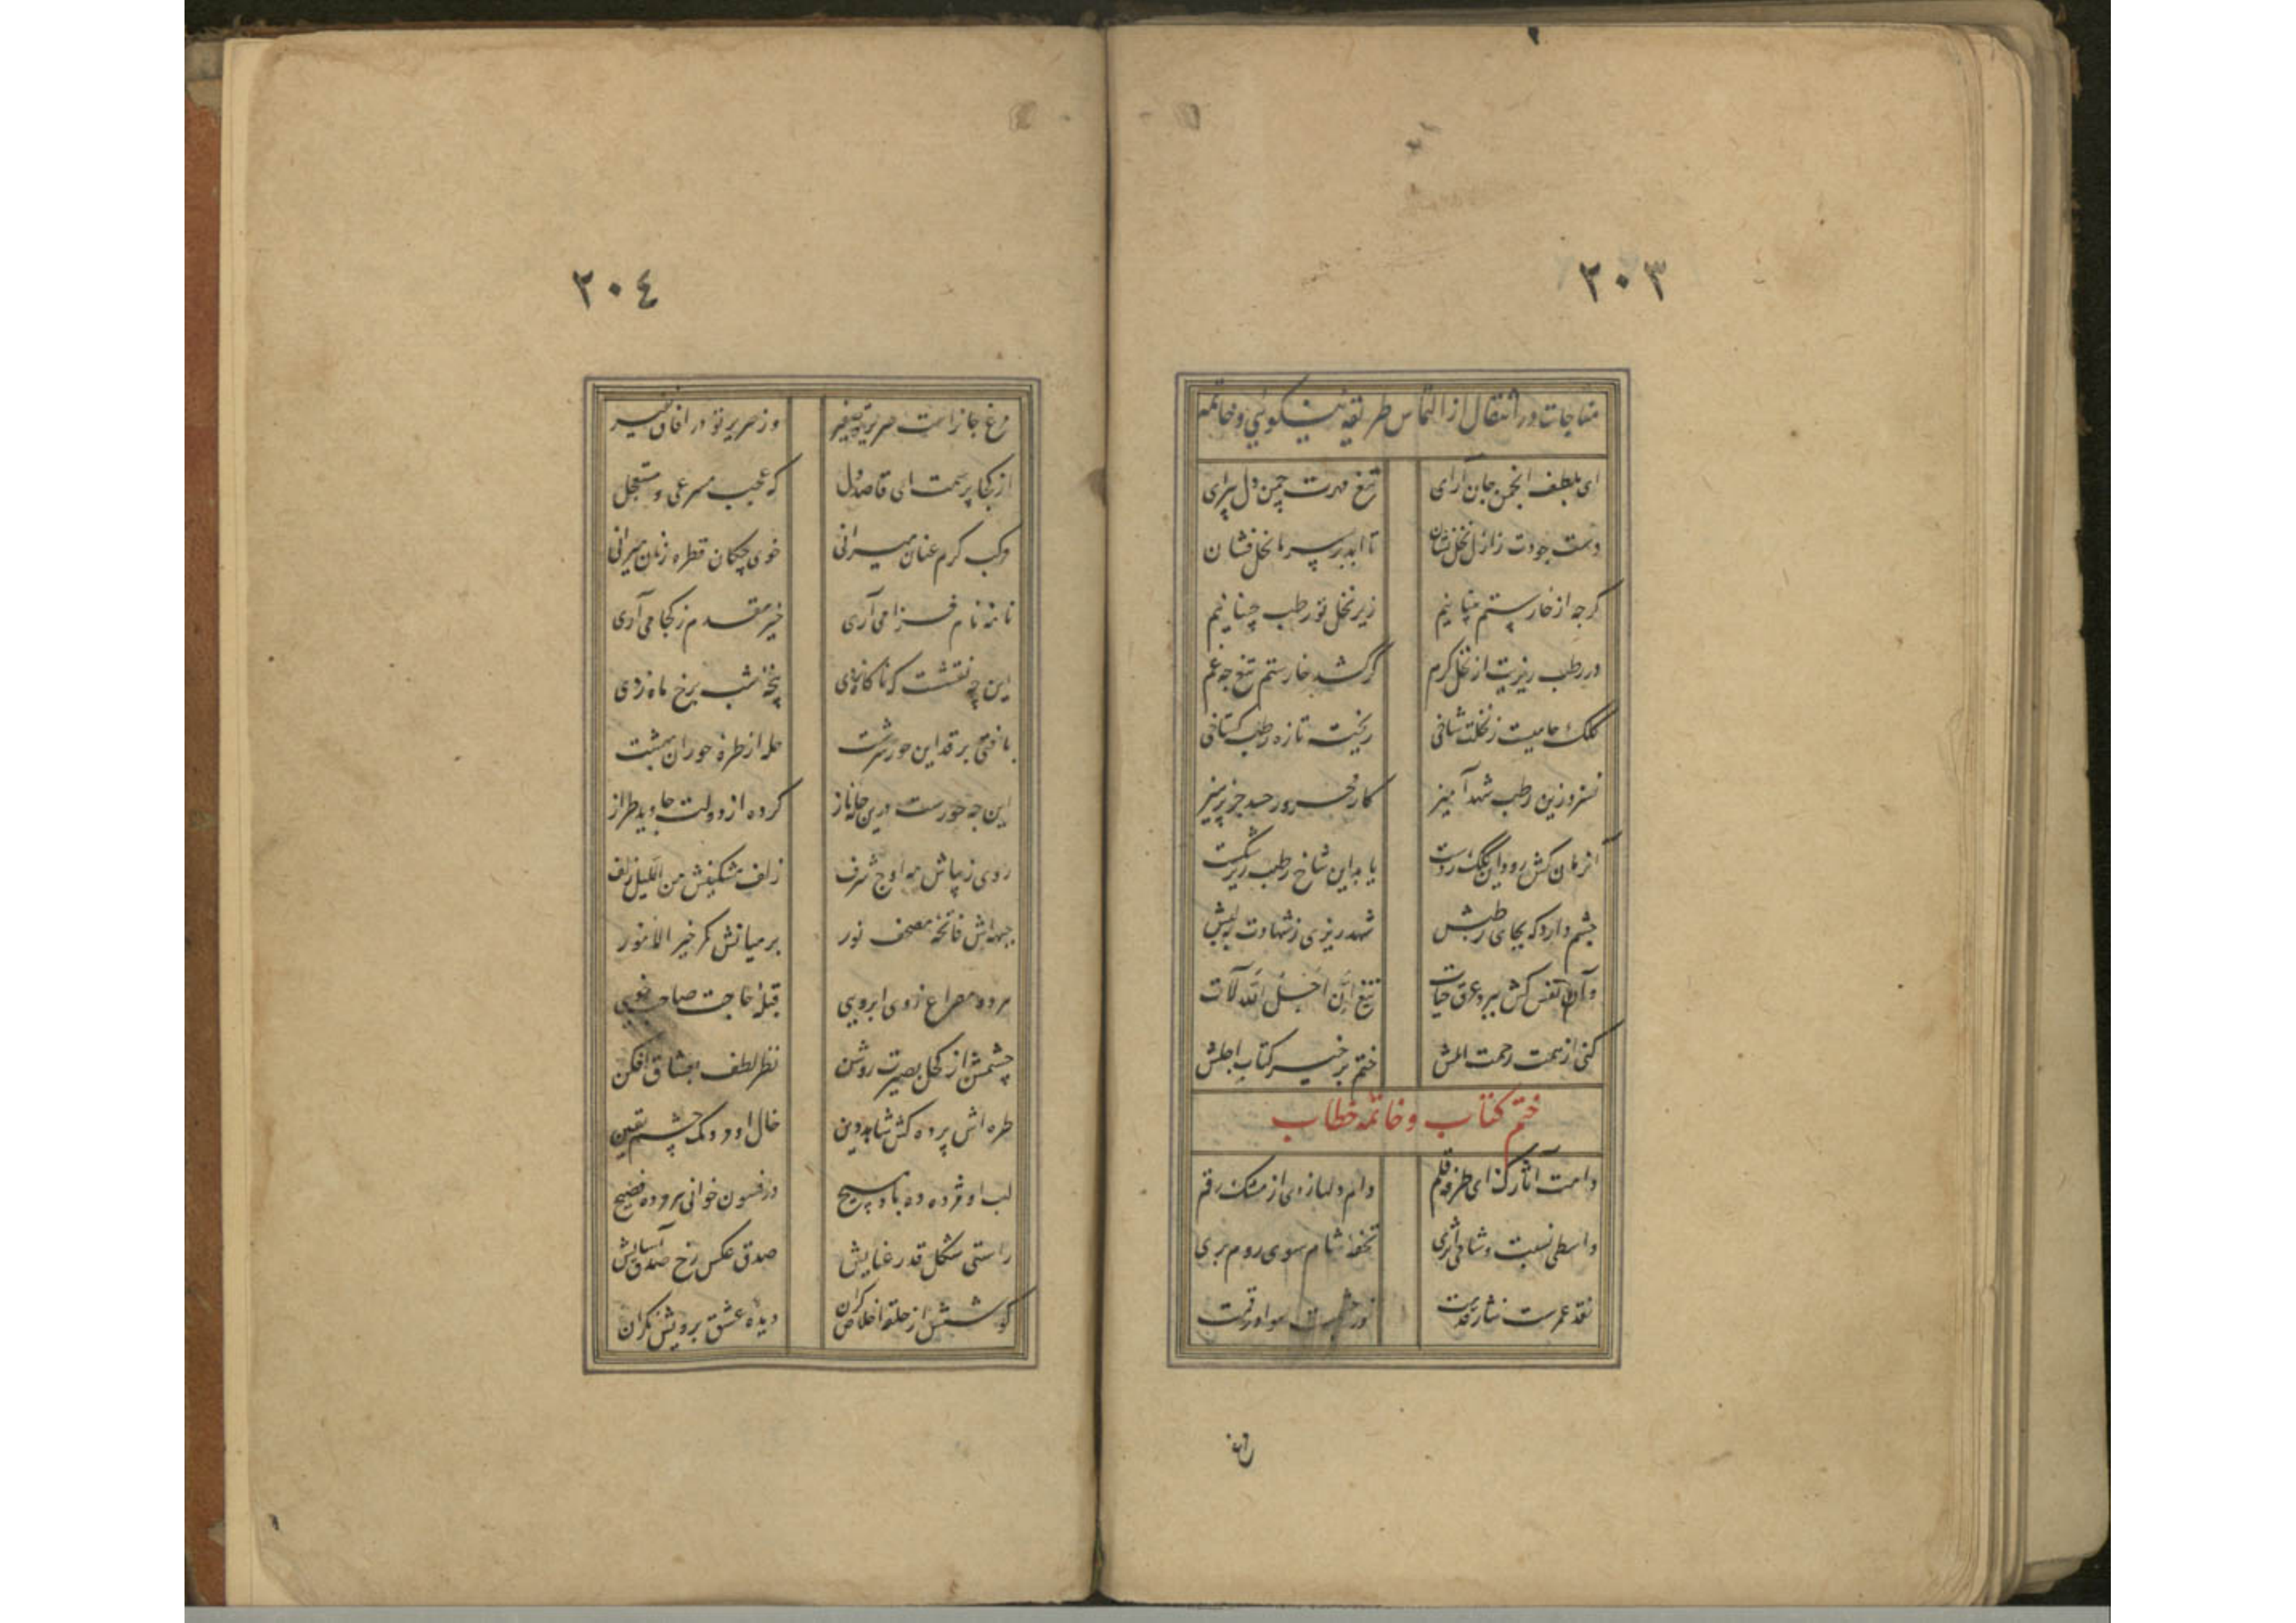 ٢٠٣
مناجات در انتقال از التماس طریقه نیکویی و خاتمه
ای بلطف انجمن جان آرای تیغ قهرت چمن دل پیرای
دست جودت ز ازل نخل نشان تا ابد بر سر ما نخل فشان
گرچه از خار ستم مینالیم زیر نخل تو رطب چینانیم
در رطب ریزیت از نخل کرم گر کشد خار ستم تیغ چه غم
کلک جامیست ز نخلت شاخی ریخت تازه رطب گستاخی
نسزد زین رطب شهدآمیز کار محرور حسد جز پرهیز
آن زمان کش رود این کلک ز دست یابد این شاخ رطب ریز شکست
چشم دارد که بجای رطبش شهد ریزی ز شهادت بلبش
وآن نفس کش ببرد عرق حیات تیغ ان اجل الله لآت
کنی از همت رحمت املش ختم بر خیر کتاب اجلش
ختم کتاب و خاتمه خطاب
دامت آثارک ای طرفه قلم دام دلها زدی از مشک رقم
واسطی نسبت و شامی اثری تحفه شام سوی روم بری
نقد عمرست نثار قدمت نور چشمست سواد رقمت
٢٠٤
مرغ جانراست صریر تو صفیر وز صریر تو در آفاق نفیر
از کجا پرسمت ای قاصد دل که عجب مسرعی و مستعجل
مرکب گرم عنان میرانی خوی چکان قطره زنان میرانی
نامه نام فزا می آری خیر مقدم ز کجا می آری
این چه نقشست که ناگاه زدی پنجه شب برخ ماه زدی
بافتی بر قد این حور سرشت حله از طره حوران بهشت
این چه حورست درین حله ناز کرده از دولت جاوید طراز
روی زیباش مه اوج شرف زلف مشکینش من اللیل زلف
جبهه اش فاتحه مصحف نور بر میانش کمر خیر الامور
هر دو مصراع ز وی ابرویی قبله حاجت صاحب خویی
چشمش از کحل بصیرت روشن نظر لطف بعشاق افکن
طره اش پرده کش شاهد دین خال او مردمک چشم یقین
لب او مژده ده باد مسیح در فسون خوانی هر مرده فصیح
راستی شکل قد رعنایش صدق عکس رخ صدق آسایش
گوشش از حلقه اخلاص گران دیده عشق برویش نگران